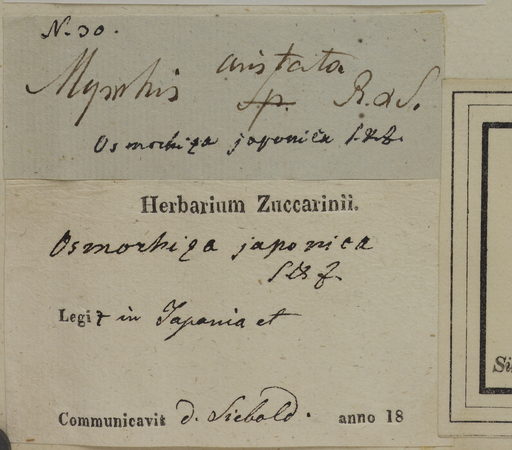 N. 30.
Myrrhis aristata
Sp. R. & S.
Osmorhiza japonica S & Z.
Herbarium Zuccarinii.
Osmorhiza japonica
S & Z.
Legit in Japonia et
Communicavit d. Siebold. anno 18